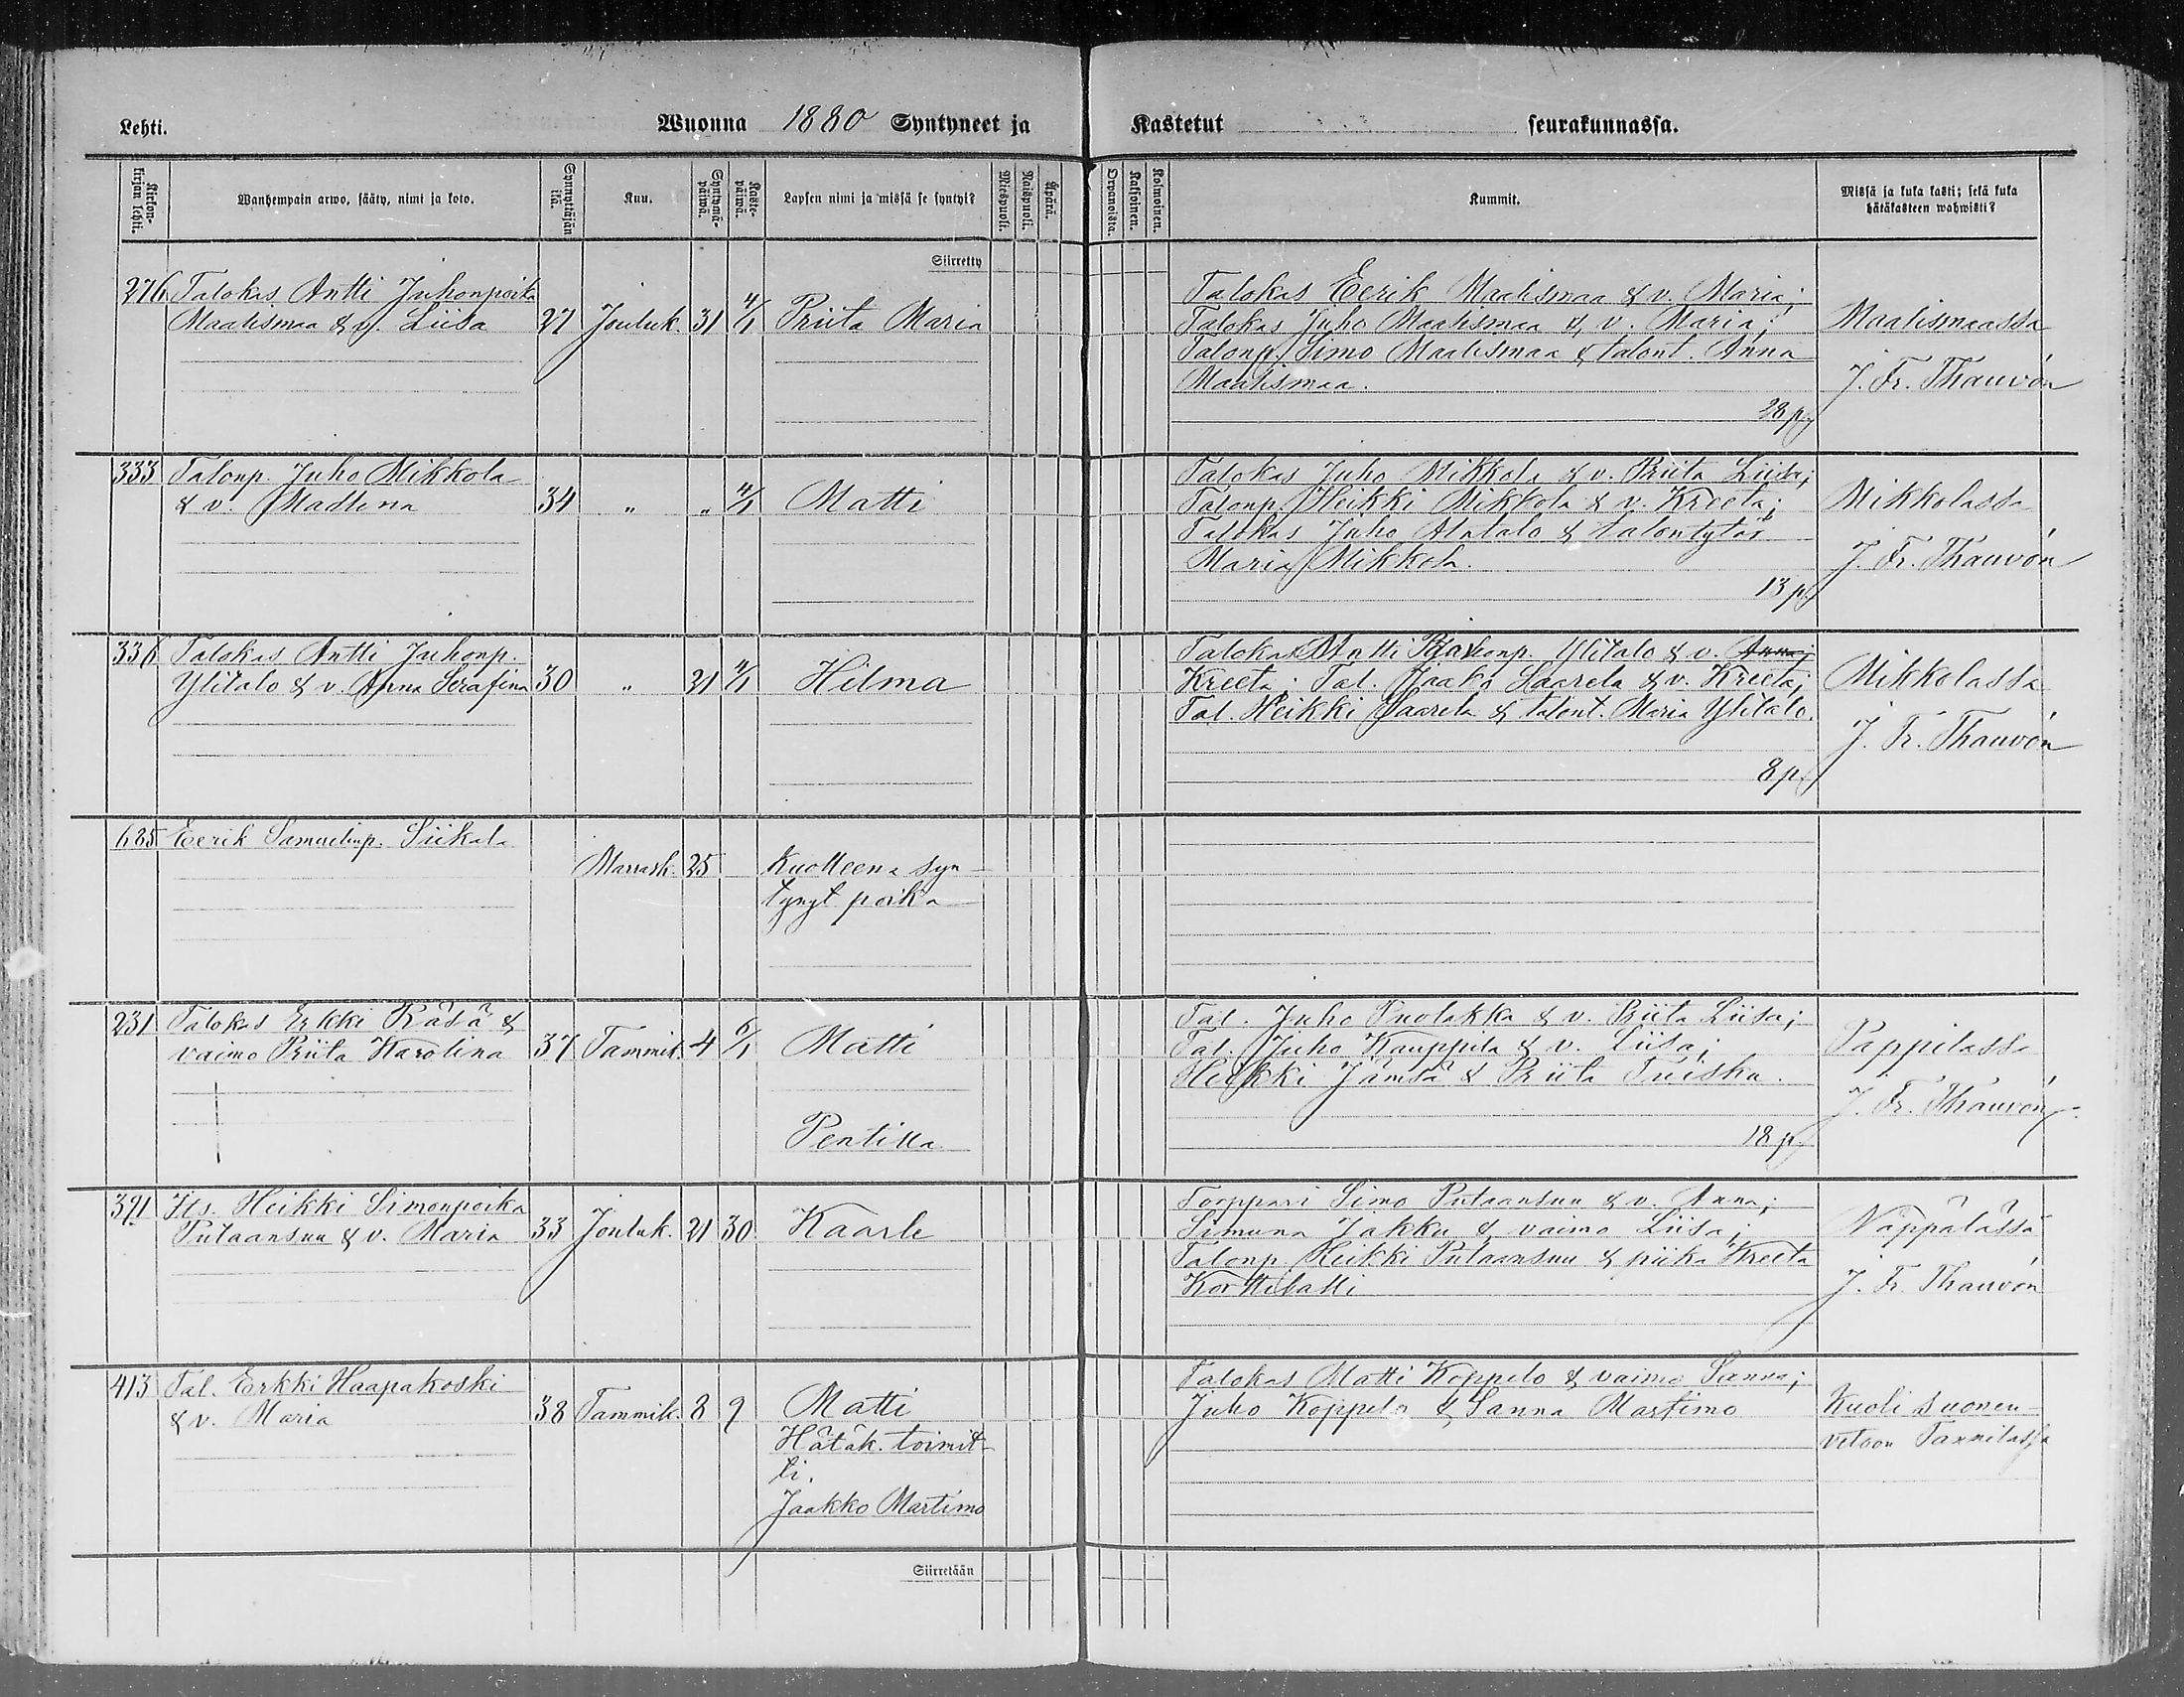 Lehti.
Wuonna 1880 Syntyneet ja
Kastetut seurakunnassa.
Kirkon-kirjan lehti.
Wanhempain arwo, sääty, nimi ja koto.
Synnyttäjän ikä.
Kuu.
Syntymä-päiwä.
Kaste-päiwä.
Lapsen nimi ja missä se syntyi?
Miespuoli.
Naispuoli.
Äpärä.
Orpanoista.
Kaksoinen.
Kolmoinen.
Kummit.
Missä ja kuka kasti; sekä kuka hätäkasteen wahwisti?
Siirretty
276 Talokas Antti Juhonpoika
Maalismaa & v. Liisa 27 Jouluk. 31 4/1 Priita Maria
Talokas Eerik Maalismaa & v. Maria;
Talokas Juho Maalismaa & v. Maria;
Talonp. Simo Maalismaa & talont. Anna
Maalismaa.
28 p.
Maalismaassa
J. Fr. Thauvón
333 Talonp. Juho Mikkola
& v. Madlena 34 " " 4/1 Matti
Talokas Juho Mikkola & v. Priita Liisa;
Talonp. Heikki Mikkola & v. Kreeta;
Talokas Juho Alatalo & talontytär
Maria Mikkola.
13 p.
Mikkolassa
J. Fr. Thauvón
336 Talokas Antti Juhonp.
Ylitalo & v. Anna Serafina 30 " 21 4/1 Hilma
Talokas Antti Ylitalo & v. Anna;
Kreeta; Tal. Jaako Saarela & v. Kreeta;
Tal. Heikki Saarela & talont. Maria Ylitalo.
8 p.
Mikkolassa
J. Fr. Thauvón
685 Eerik Samuelinp. Siikala
Marrask. 25 Kuolleena syn-
tynyt poika
231 Talokas Erkki Räsä &
vaimo Priita Karolina 37 Tammik. 4 6/1 Matti
Pentilla
Tal. Juho Suolakka & v. Priita Liisa;
Tal. Juho Kauppila & v. Liisa;
Heikki Jämsä & Priita Tuisku.
18 p.
Pappilassa
J. Fr. Thauvón
391 Its. Heikki Simonpoika
Putaansuu & v. Maria 33 Jouluk. 21 30 Kaarle
Torppari Simo Putaansuu & v. Anna;
Simuna Jakku & vaimo Liisa;
Talonp. Heikki Putaansuu & piika Kreeta
Korttilatti
Näppälässä
J. Fr. Thauvón
413 Tal. Erkki Haapakoski
& v. Maria 38 Tammik. 8 9 Matti
Hätäk. toimit-
ti.
Jaakko Martimo
Talokas Matti Koppelo & vaimo Sanna;
Juho Koppelo & Sanna Martimo
Kuoli suonen-
vetoon
Siirretään